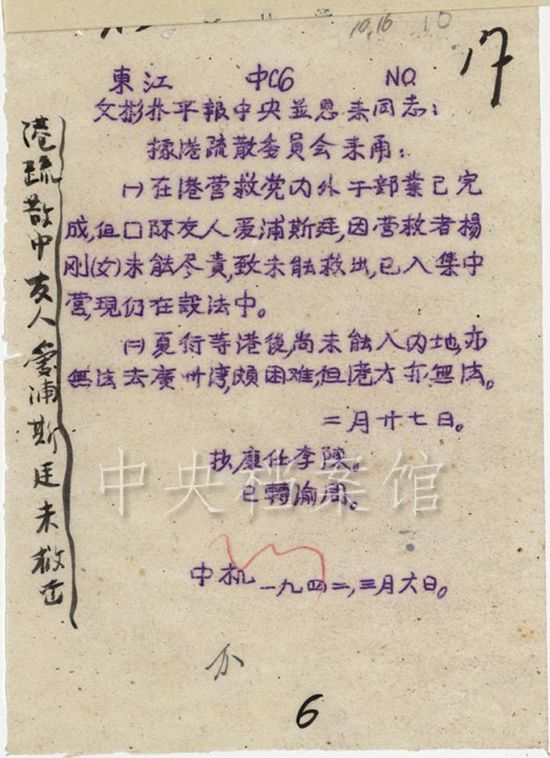 10,16 10
17
東江 中C6 NO
文彬并平報中央並恩来同志：
据港疏散委員会来甬：
㈠在港营救党内外干部業已完
成，但囗际友人爱浦斯廷，因营救者楊
刚(女)未能尽責，致未能救出，已入集中
营，現仍在設法中。
㈡夏衍等港後，尚未能入内地，亦
無法去廣州湾，頗困难，但港方亦無法。
二月廿七日。
抄康任李陳。
已轉渝周。
中机 一九四二，三月六日。
6
港疏散中友人爱浦斯廷未救出
中央档案馆